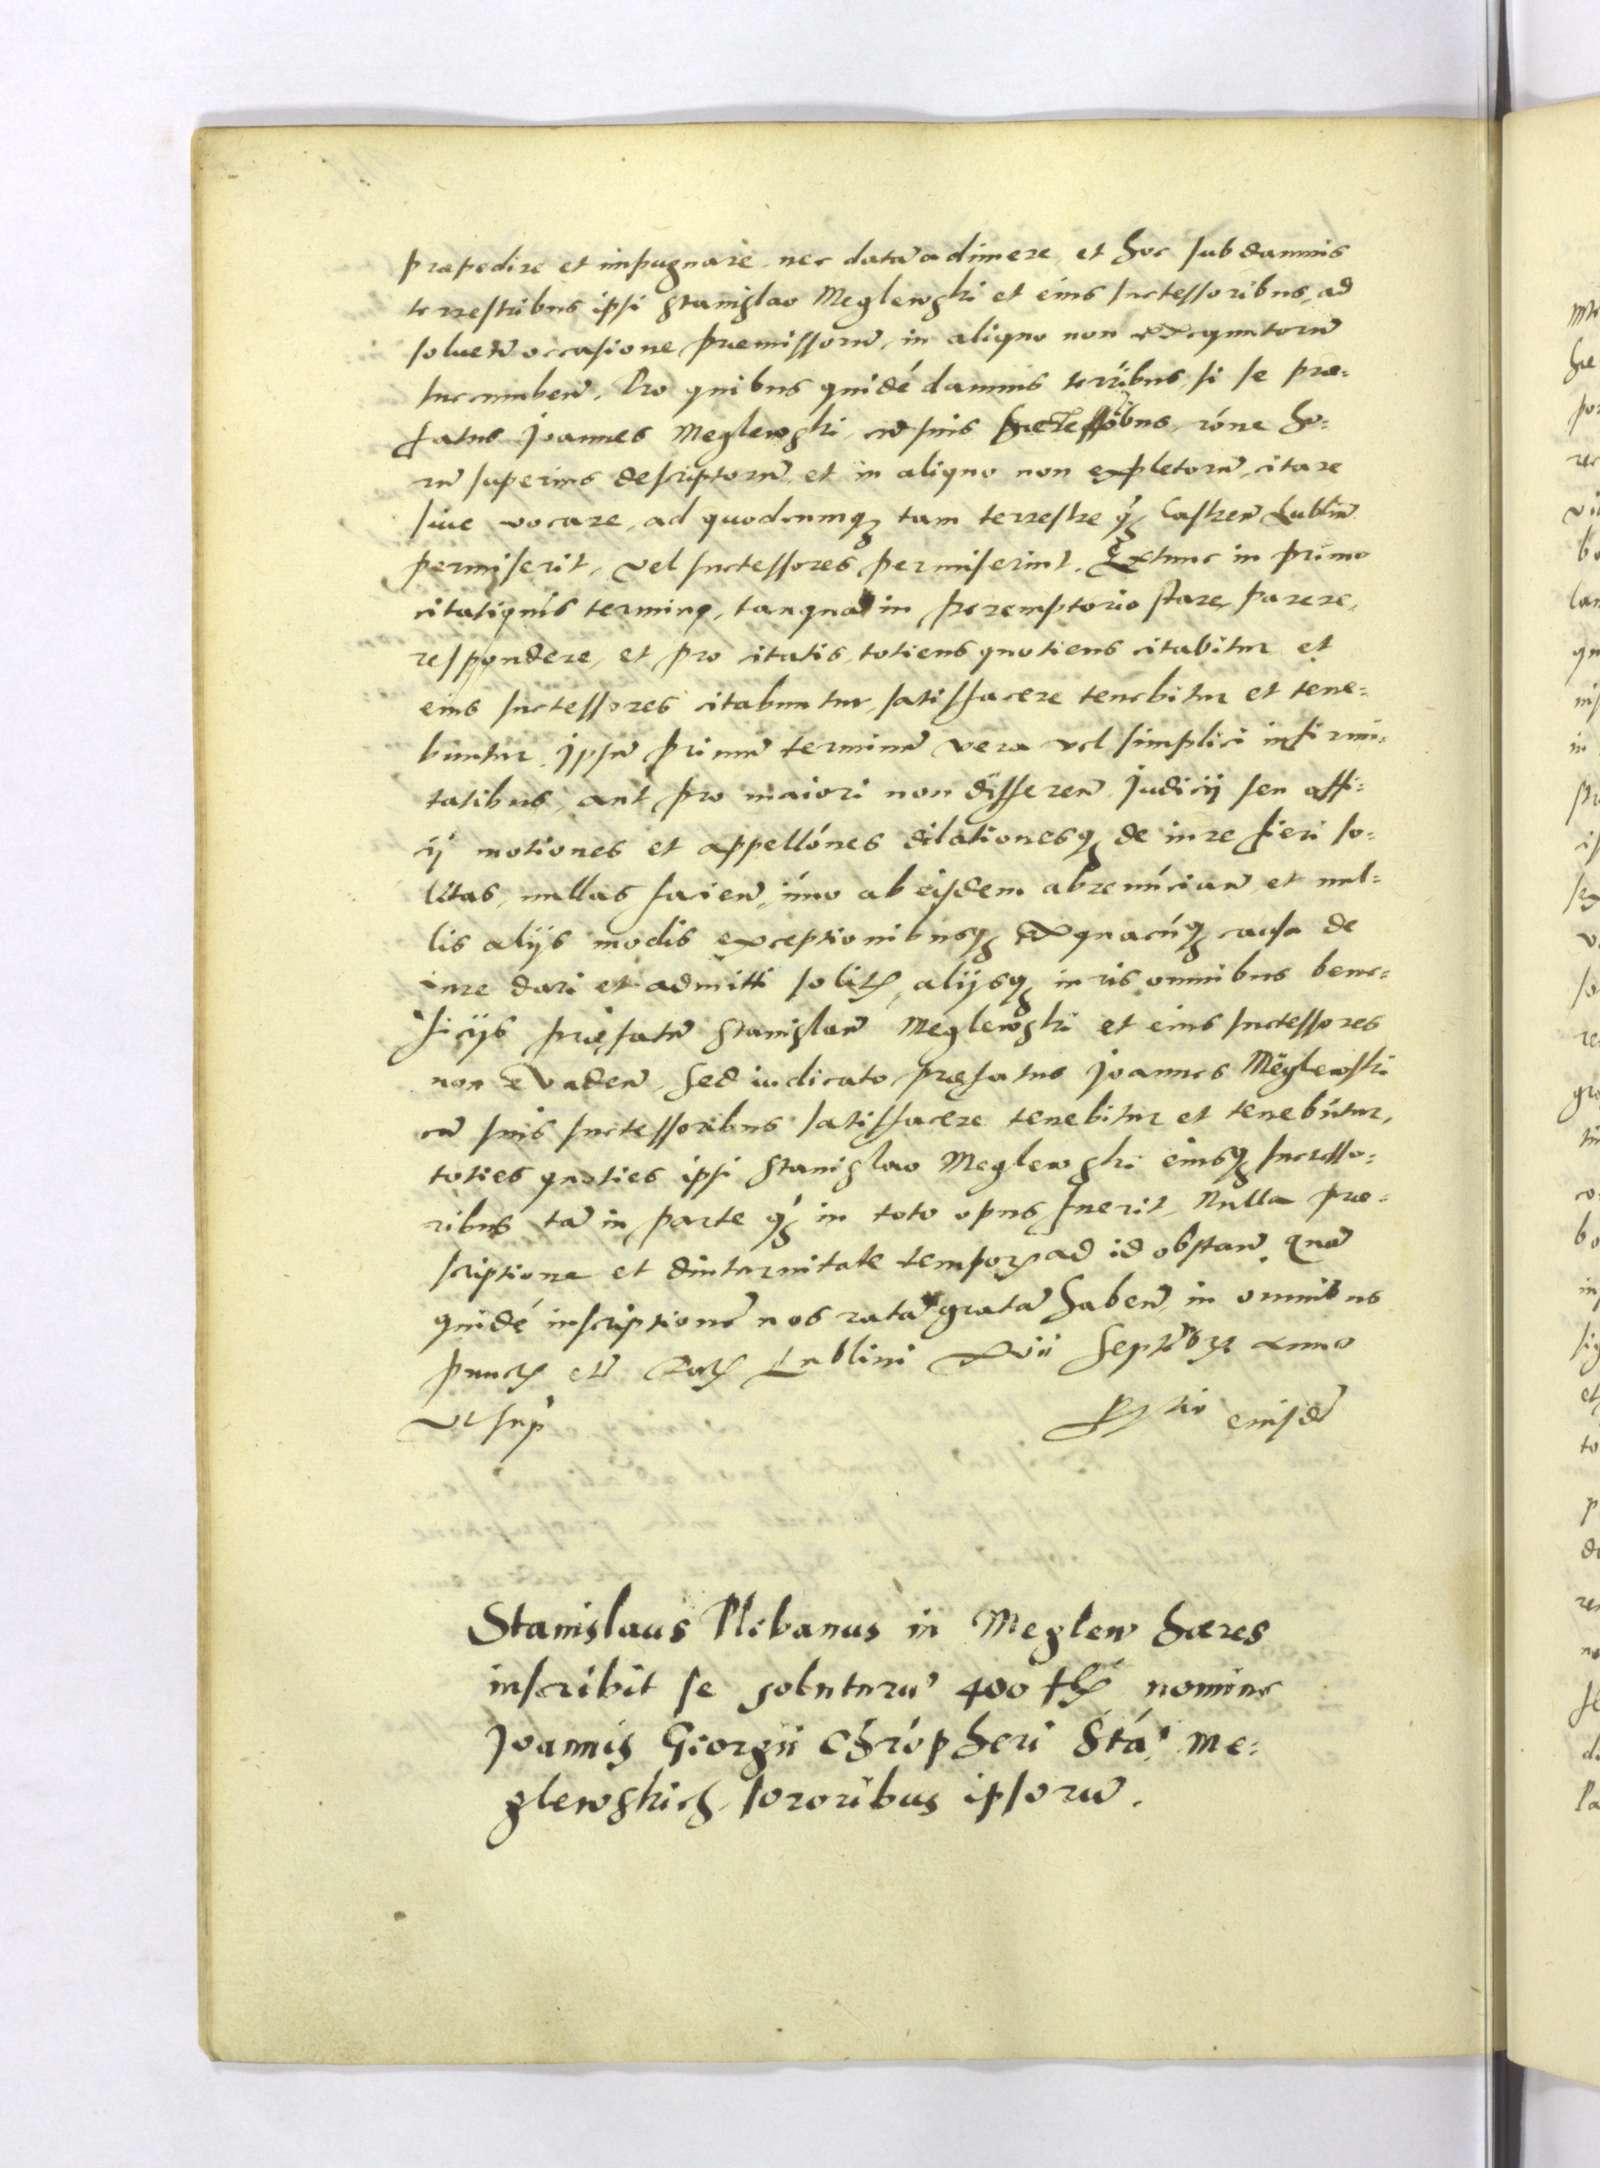 præpedire et impugnare, nec datam adimere, et hoc sub damnis
terrestribus ipsi Stanislao Meglewski et eius successoribus, ad
soluen̄ occasione præmissorū, in aliquo non exequutorū
succumben̄. Pro quibus quidē damnis terribus, si se præ-
fatus Joannes Meglewski, cū suis successoribus, rōne ho-
rū superius descriptorū et in aliquo non expletorū, citare
siue vocare, ad quodcumqȝ tam terrestre qȝ Castren̄ Lublin̄
permiserit, vel successores permiserint. Extunc in primo
citationis termino, tanquā in peremptorio stare, parere,
respondere, et pro citatis, totiens quotiens citabitur et
eius successores citabuntur, satisfacere tenebitur et tene-
buntur. Ipsū primū terminū vera vel simplici infirmi-
tatibus, aut pro maiori non differen̄. Judicij seu offi-
cij motiones et appellōnes dilationesqȝ de iure fieri so-
litas, nullas facien̄, īmo ab eisdem abrenūcian̄ et nul-
lis alijs modis exceptionibusqȝ ex quacūqȝ causa de
iure dari et admitti solitꝭ, alijsqȝ iuris omnibus bene-
ficijs præfatū Stanislaū Meglewski et eius successores
non evaden̄, sed iudicato præfatus Joannes Meglewski
cū suis successoribus satisfacere tenebitur et tenebūtur,
toties quoties ipsi Stanislao Meglewski eiusqȝ successo-
ribus tā in parte qȝ in toto opus fuerit, Nulla præ-
scriptione et diuturnitate temporꝭ ad id obstan̄. Quā
quidē inscriptionē nos ratā gratā haben̄ in omnibus
punctꝭ etc̄ Datꝭ Lublini xvii Septēbrꝭ anno
vt sup̄ Rtio eiusdē
Stanislaus Plebanus in Meglew hæres
inscribit se soluturū 400 flꝭ nomine
Joannis Georgii Chrōpheri Stā: Me-
glewskich sororibus ipsorū.